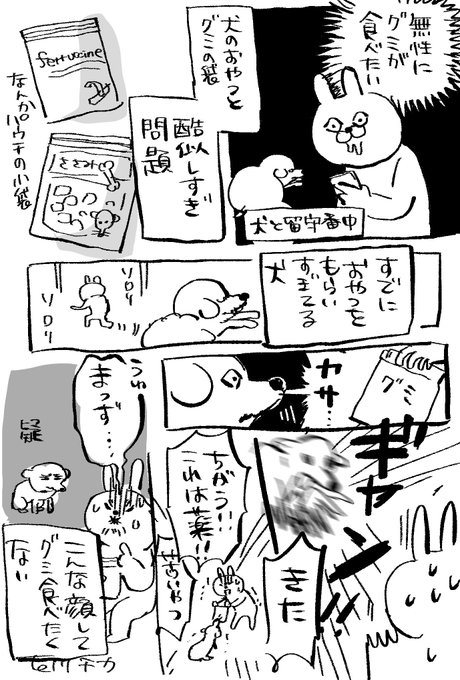 無性に
グミが
食べたい
犬と留守番中
犬のおやつと
グミの袋
酷似しすぎ
問題
fettuccine
ささみ
なんかパウチの小袋
すでに
おやつを
もらい
すぎてる
犬
ソロリ
ソロリ
グミ
カサ…
ギャ
きた
ちがう!!
これは薬!!
苦いやつ
うわ
まっず…
疑
こんな顔して
グミ食べたく
ない